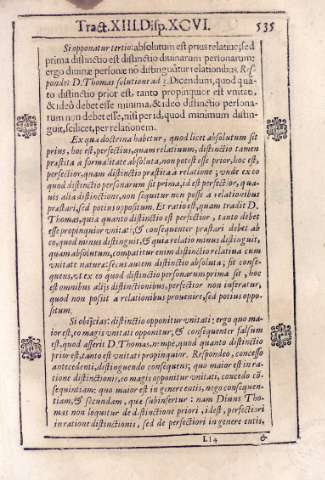 Tract. XIII. Disp. XCVI. 535
Si opponatur tertio: absolutum est prius relatiuo, sed
prima distinctio est distinctio diuinarum personarum:
ergo diuinæ personæ nõ distinguũtur relationibus. Res-
pondet D. Thomas solutione ad 3. Dicendum, quod quã-
to distinctio prior est, tanto propinquior est vnitati,
& ideò debet esse minima, & ideo distinctio persona-
rum non debet esse, nisi per id, quod minimum distin-
guit, scilicet, per relationem.
Ex qua doctrina habetur, quod licet absolutum sit
prius, hoc est, perfectius, quam relatiuum, distinctio tamen
præstita à formalitate absoluta, non potest esse prior, hoc est,
perfectior, quam distinctio præstita à relatione; vnde ex eo
quod distinctio personarum sit prima, id est perfectior, qua-
uis alia distinctione, non sequitur non posse à relationibus
præstari, sed potius oppositum. Et ratio est, quam tradit D.
Thomas, quia quanto distinctio est perfectior, tanto debet
esse propinquior vnitati; & consequenter præstari debet ab
eo, quod minus distinguit, & quia relatio minus distinguit,
quam absolutum, compatitur enim distinctio relatiua cum
vnitate naturæ: secus autem distinctio absoluta; fit conse-
quens, vt ex eo quod distinctio personarum prima sit, hoc
est omnibus alijs distinctionibus, perfectior non inferatur,
quod non possit à relationibus prouenire, sed potius oppo-
situm.
Si obijcias: distinctio opponitur vnitati: ergo quo ma-
ior est, eo magis vnitati opponitur, & consequenter falsum
est, quod asserit D. Thomas, nempe, quod quanto distinctio
prior est, tanto est vnitati propinquior. Respondeo, concesso
antecedenti, distinguendo consequens; quo maior est in ra-
tione distinctionis, eo magis opponitur vnitati, concedo cõ-
sequentiam: quo maior est in genere entis, nego consequen-
tiam, & secundam, quæ subinfertur: nam Diuus Tho-
mas non loquitur de distinctione priori, idest, perfectiori
in ratione distinctionis, sed de perfectiori in genere entis,
Ll 4 &